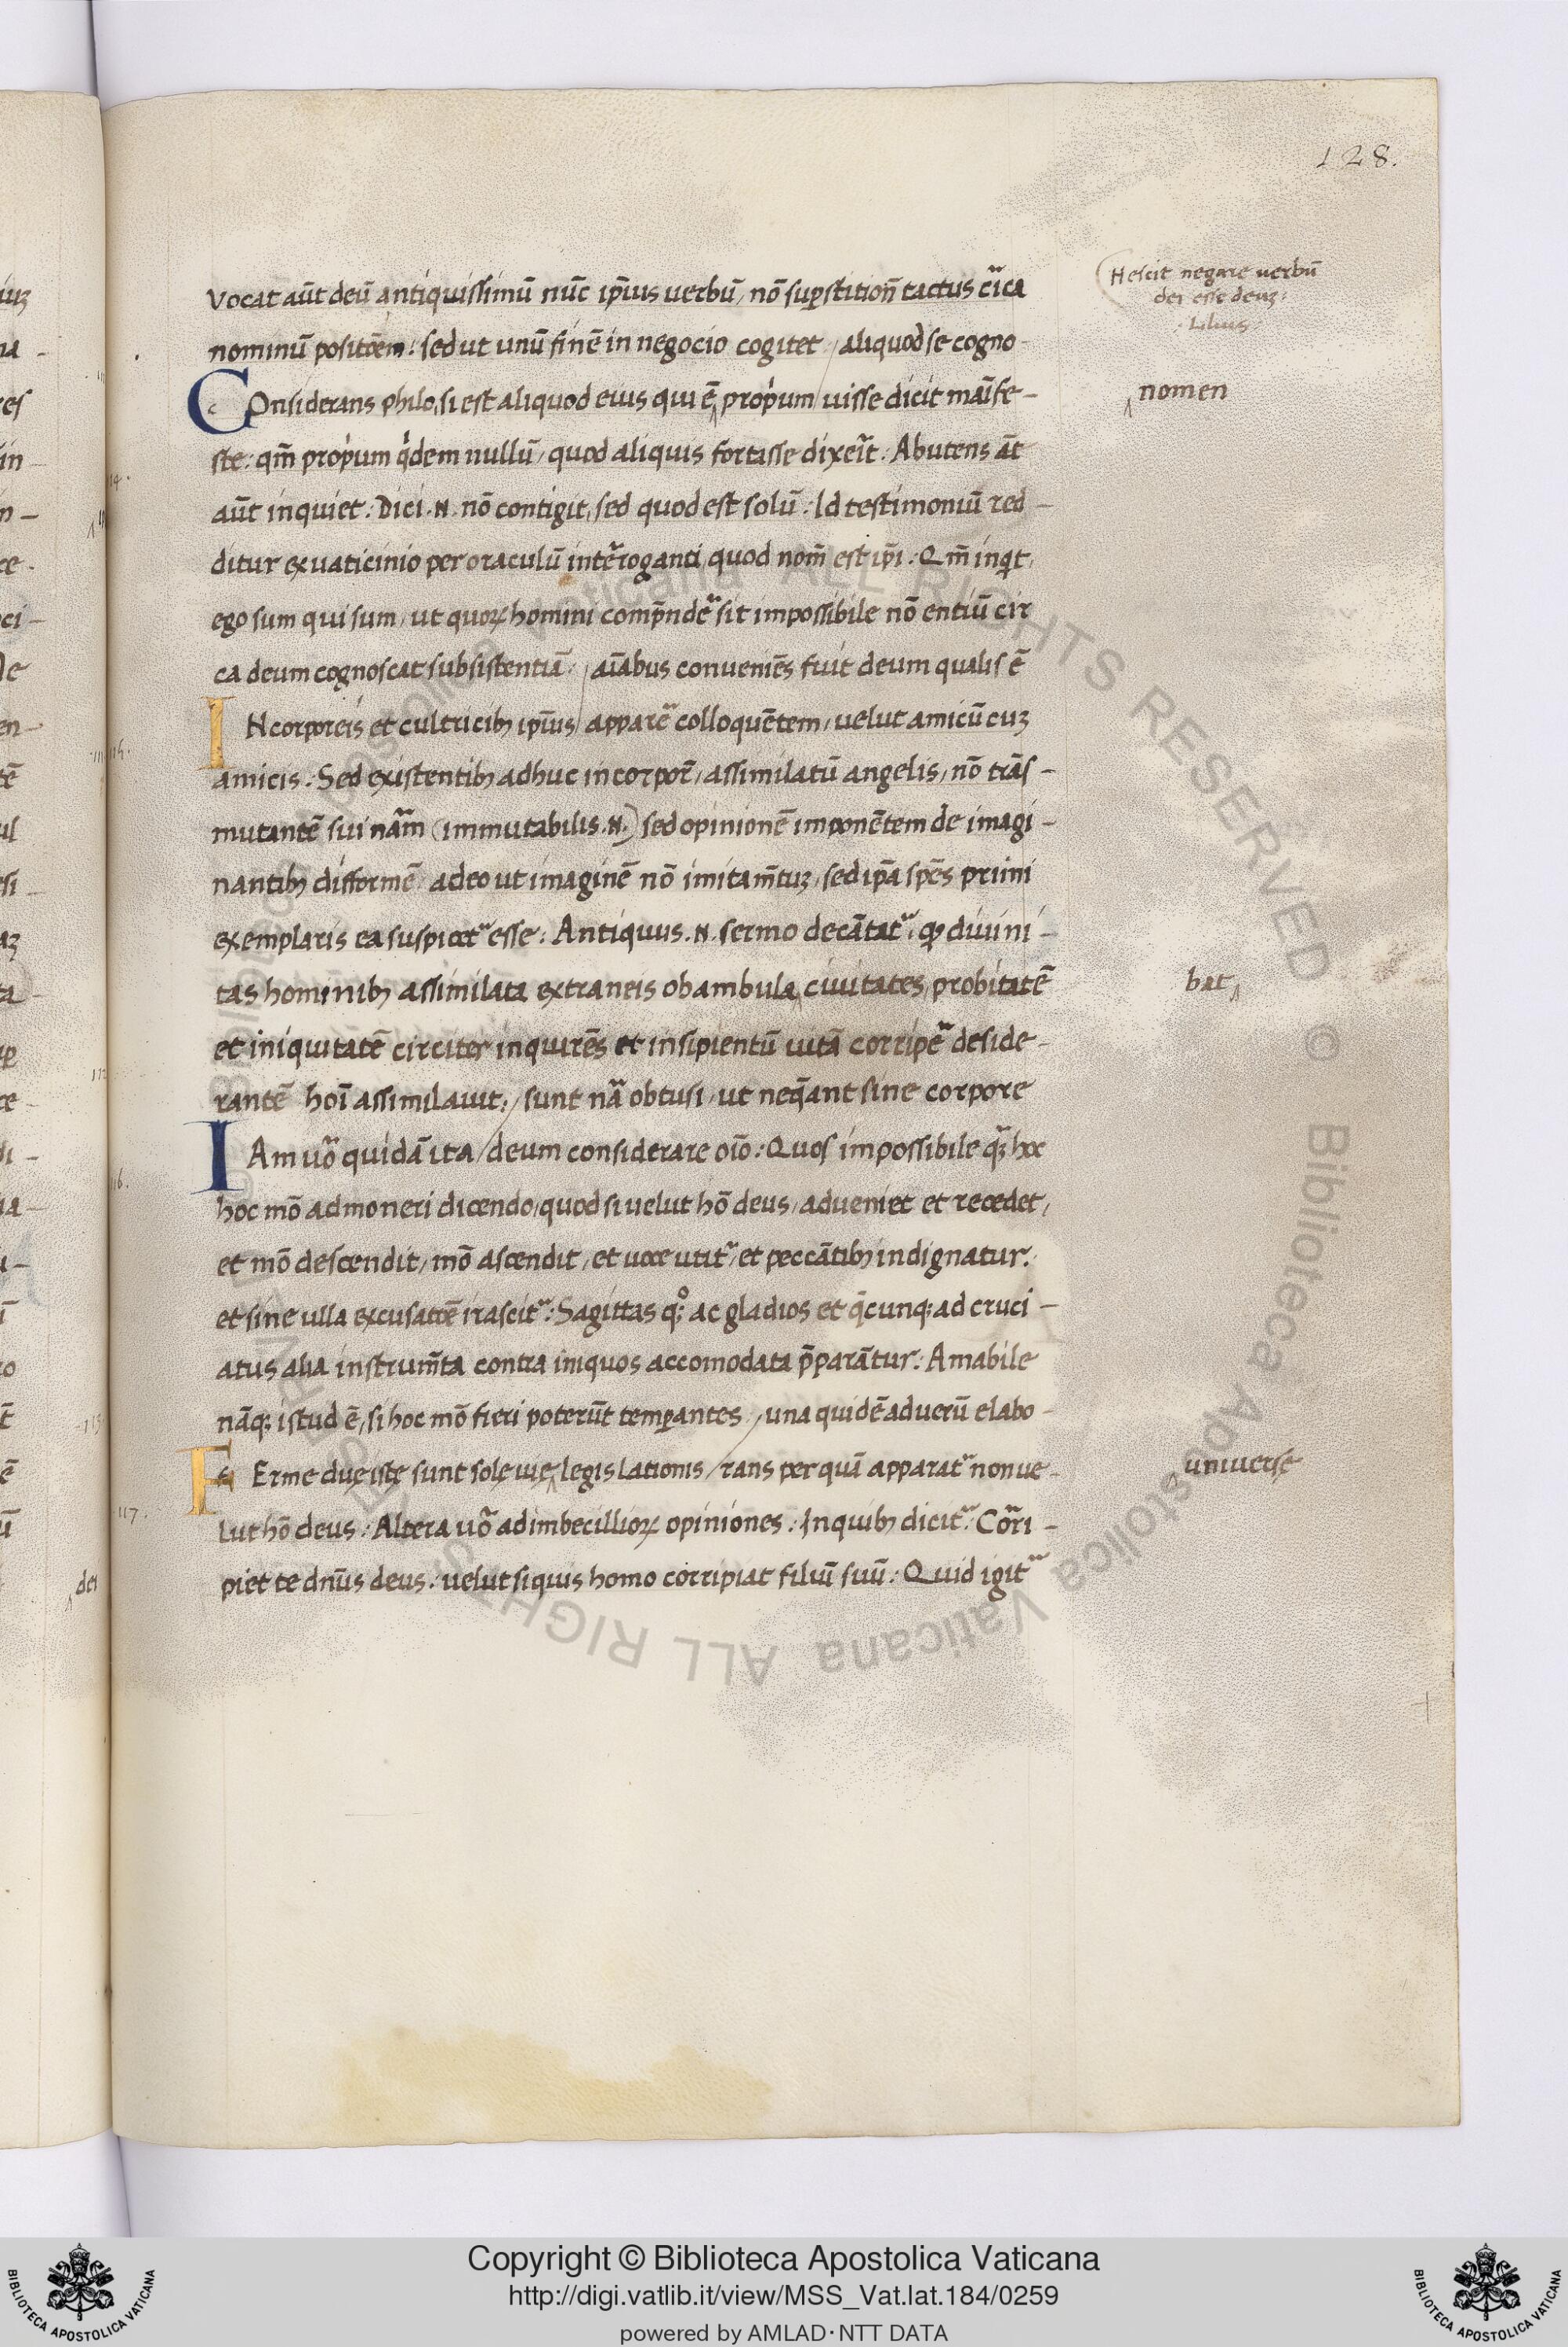 128.
Vocat aūt deū antiquissimū nūc ip̄ius uerbū, nō sup̱stition̄ tactus cir̄ca
nominū positōem: sed ut unū finē in negocio cogitet / aliquod se cogno-
COnsiderans philo, si est aliquod eius qui ē proṗum / uisse dicit maīfe-
ste: qm̄ proṗum q̇dem nullū, quod aliquis fortasse dixeīt: Abutens āt
aūt inquiet: Dici .N. nō contigit, sed quod est solū: Id testimoniū red-
ditur ex uaticinio per oraculū inter̄roganti, quod nom̄ est ip̄i: Qm̄ inqt,
ego sum qui sum, ut quoꝝ homini comp̄ndēr sit impossibile nō entiū cir
ca deum cognoscat subsistentiā: / aīabus conueniēs fuit deum qualis ē
INcorporeis et cultricibꝫ ip̄ius / apparēr colloquētem, uelut amicū cuꝫ
amicis: Sed existentibꝫ adhuc in corpor̄, assimilatū angelis, nō trās-
mutantē sui nāam (immutabilis .N.) sed opinionē imponētem de imagi-
nantibꝫ difformē adeo ut imaginē nō imitam̄tuꝫ, sed ip̄a spēs primi
exemplaris ea suspicetr esse: Antiquus .N. sermo decātatr: qꝫ diuini-
tas hominibꝫ assimilata extraneis obambula ciuitates, probitatē
et iniquitatē circiter inquirēs et insipientū uitā corripēr deside-
rantē hoī assimilauit: / sunt nāa obtusi, ut neq̄ant sine corpore
IAm uō quidā ita / deum considerare oīo: Quos impossibile qꝫ hoc
hoc mō admoneri dicendo, quod si uelut hō deus, adueniet et recedet,
et mō descendit, mō ascendit, et uoce utitr, et peccātibꝫ indignatur:
et sine ulla excusatōe irascitr: Sagittas qꝫ ac gladios et q̄cunqꝫ ad cruci-
atus alia instrum̄ta contra iniquos accomodata p̄parātur: Amabile
nāqꝫ istud ē, si hoc mō fieri poterūt temperantes, / una quidē ad uerū elabo-
FErme duę istę sunt solę uię legis lationis / rans per quā apparatr non ue-
lut hō deus: Altera uō ad imbecillioꝝ opiniones: In quibꝫ dicitr: Cor̄ri-
piet te dn̄us deus: uelut si quis homo corripiat filiū suū: Quid igitr
Nescit negare uerbū
dei esse deuꝫ:
Lilius
nomen
bat
uniuersę
114.
115.
116.
117.
dei
Copyright © Biblioteca Apostolica Vaticana
http://digi.vatlib.it/view/MSS_Vat.lat.184/0259
powered by AMLAD·NTT DATA
BIBLIOTECA APOSTOLICA VATICANA
BIBLIOTECA APOSTOLICA VATICANA
© Biblioteca Apostolica Vaticana ALL RIGHTS RESERVED